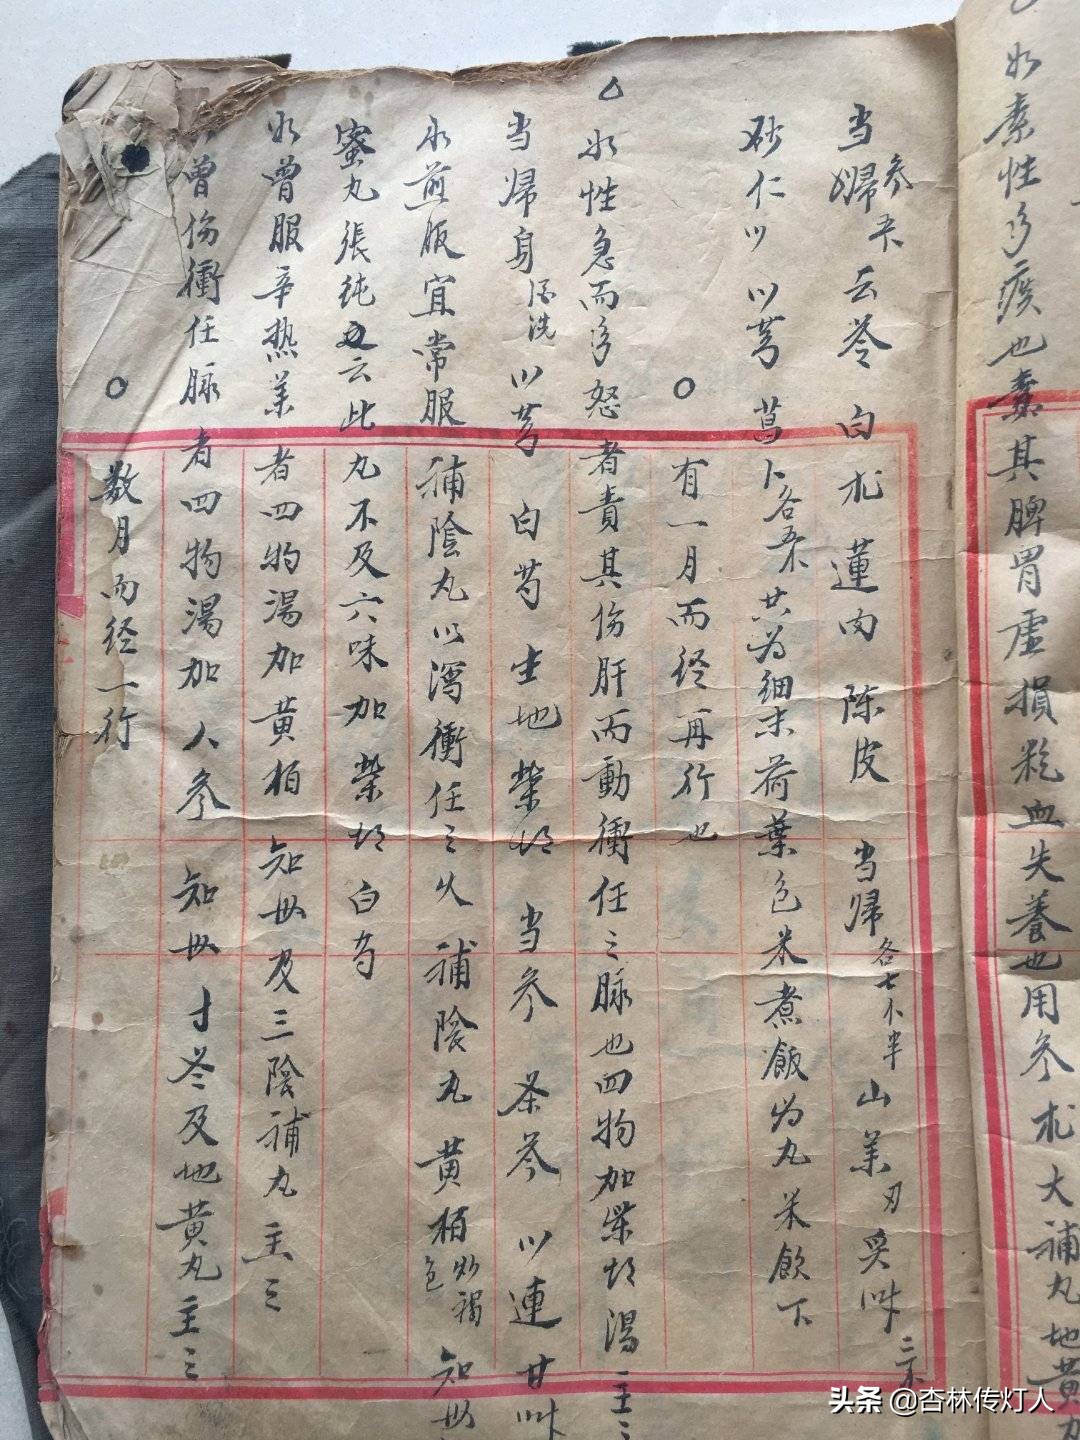 如素性多痰也責其脾胃虛損粃血失養也用参朮大補丸地黄丸
当歸参 云苓 白朮 蓮肉 陈皮 当歸各七小半 山羊刃炙叶三
砂仁以 以芎 菖卜各五 共为细末荷葉包米煮飯为丸米飲下
○有一月而经再行也
△如性急而多怒者責其伤肝而動衝任之脉也四物加柴胡湯主之
当歸身酒洗 以芎 白芍 生地 柴胡 当参 条芩 以連 甘叶
水煎服宜常服補陰丸以瀉衝任之火 補陰丸 黄柏炒褐色 知母
蜜丸張純云此丸不及六味加柴胡白芍
如曾服辛热羊者四物湯加黄柏知母及三陰補丸主之
曾伤衝任脉者四物湯加人参 知母 寸冬及地黄丸主之
○数月而经一行
头条@杏林传灯人